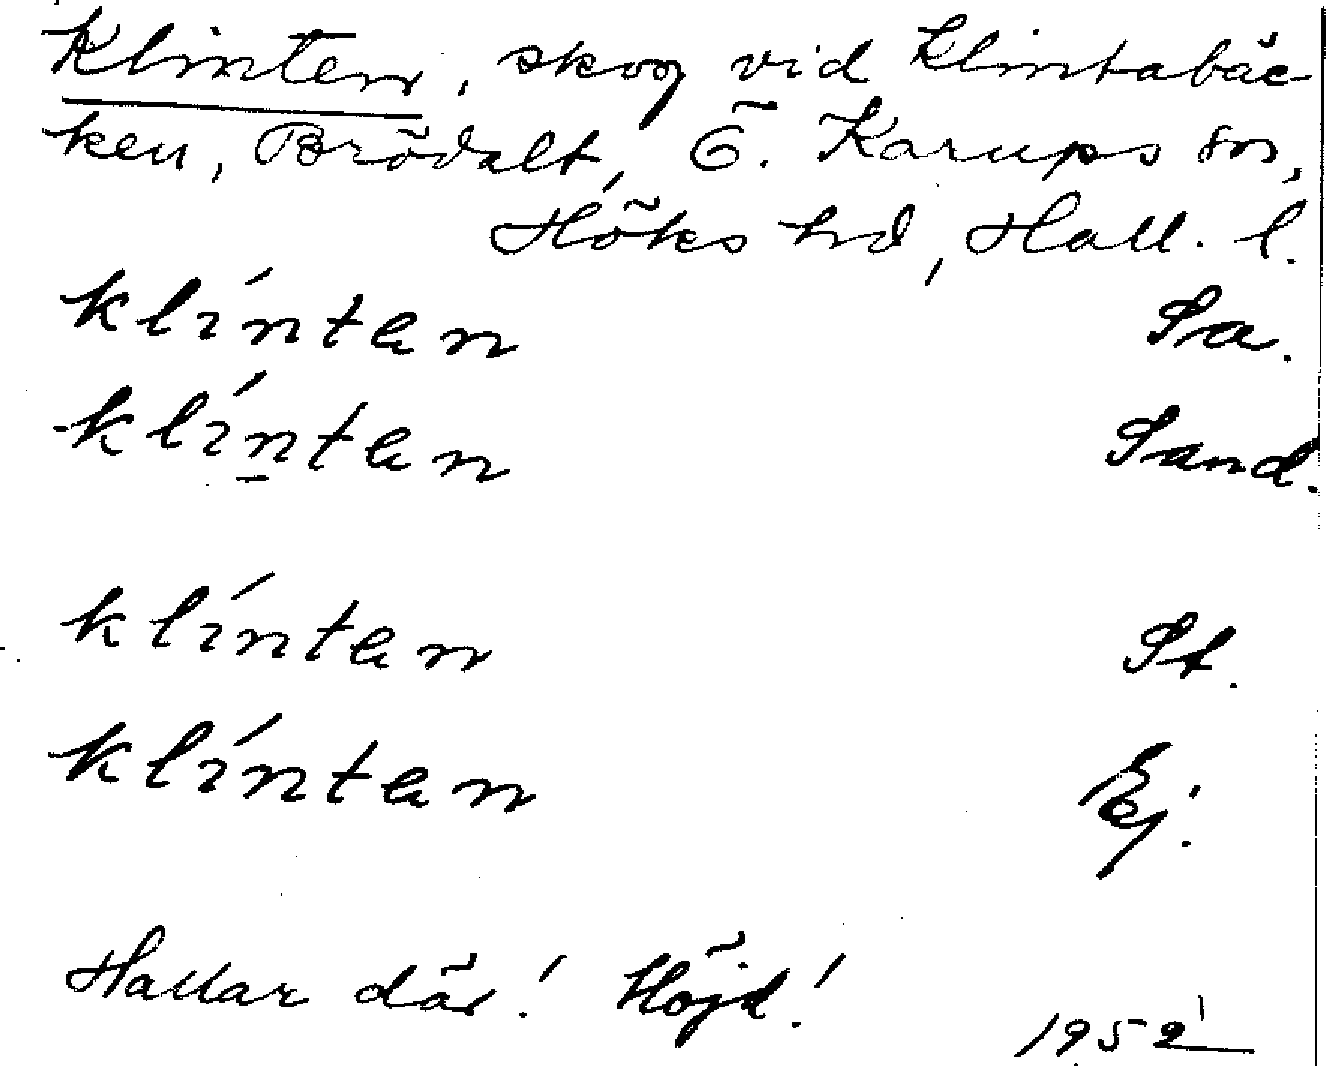 Klinten, skog vid Klintabäc-
ken, Brödalt, Ö. Karups sn,
Höks hd, Hall. l.
klíntan Sa.
klíntan Sand.
klíntan St.
klíntan Ej.
Hallar där! Höjd!
1952